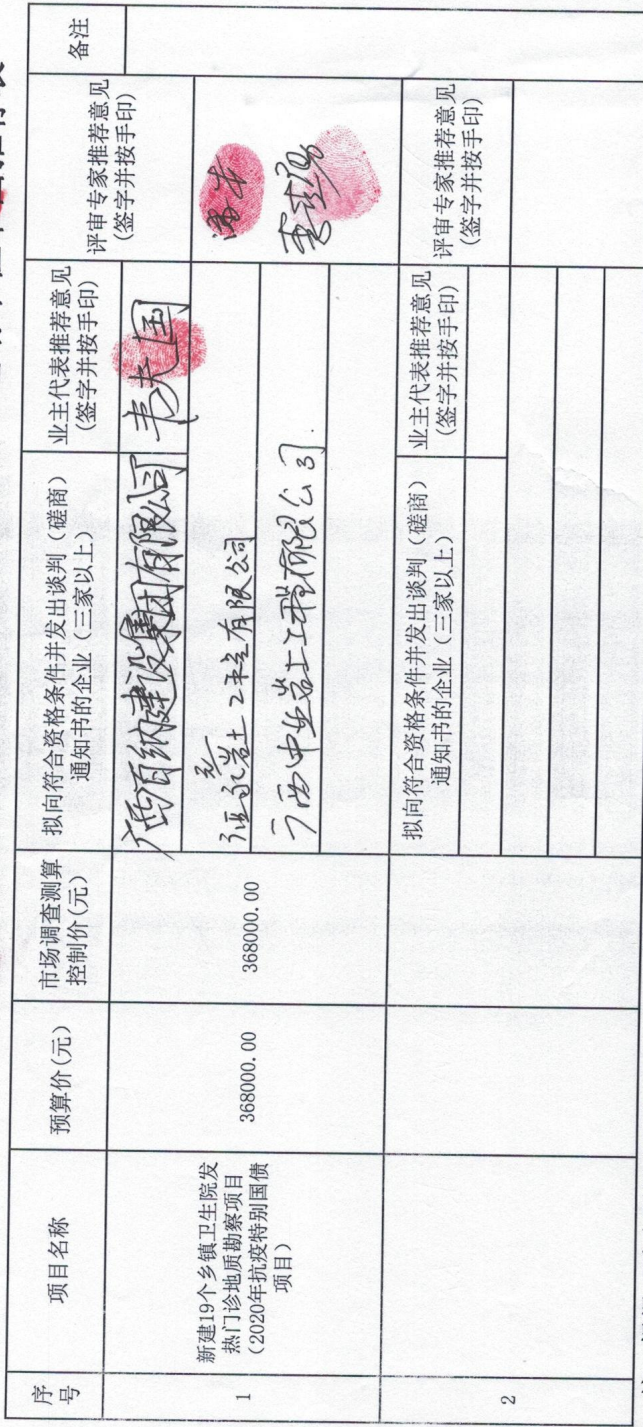 序号
项目名称
预算价(元)
市场调查测算
控制价(元)
拟向符合资格条件并发出谈判（磋商）
通知书的企业（三家以上）
业主代表推荐意见
(签字并按手印)
评审专家推荐意见
(签字并按手印)
备注
1
新建19个乡镇卫生院发
热门诊地质勘察项目
（2020年抗疫特别国债
项目）
368000.00
368000.00
建设集团有限公司
岩土工程有限公司
广西中业岩土工程有限公司
2
拟向符合资格条件并发出谈判（磋商）
通知书的企业（三家以上）
业主代表推荐意见
(签字并按手印)
评审专家推荐意见
(签字并按手印)